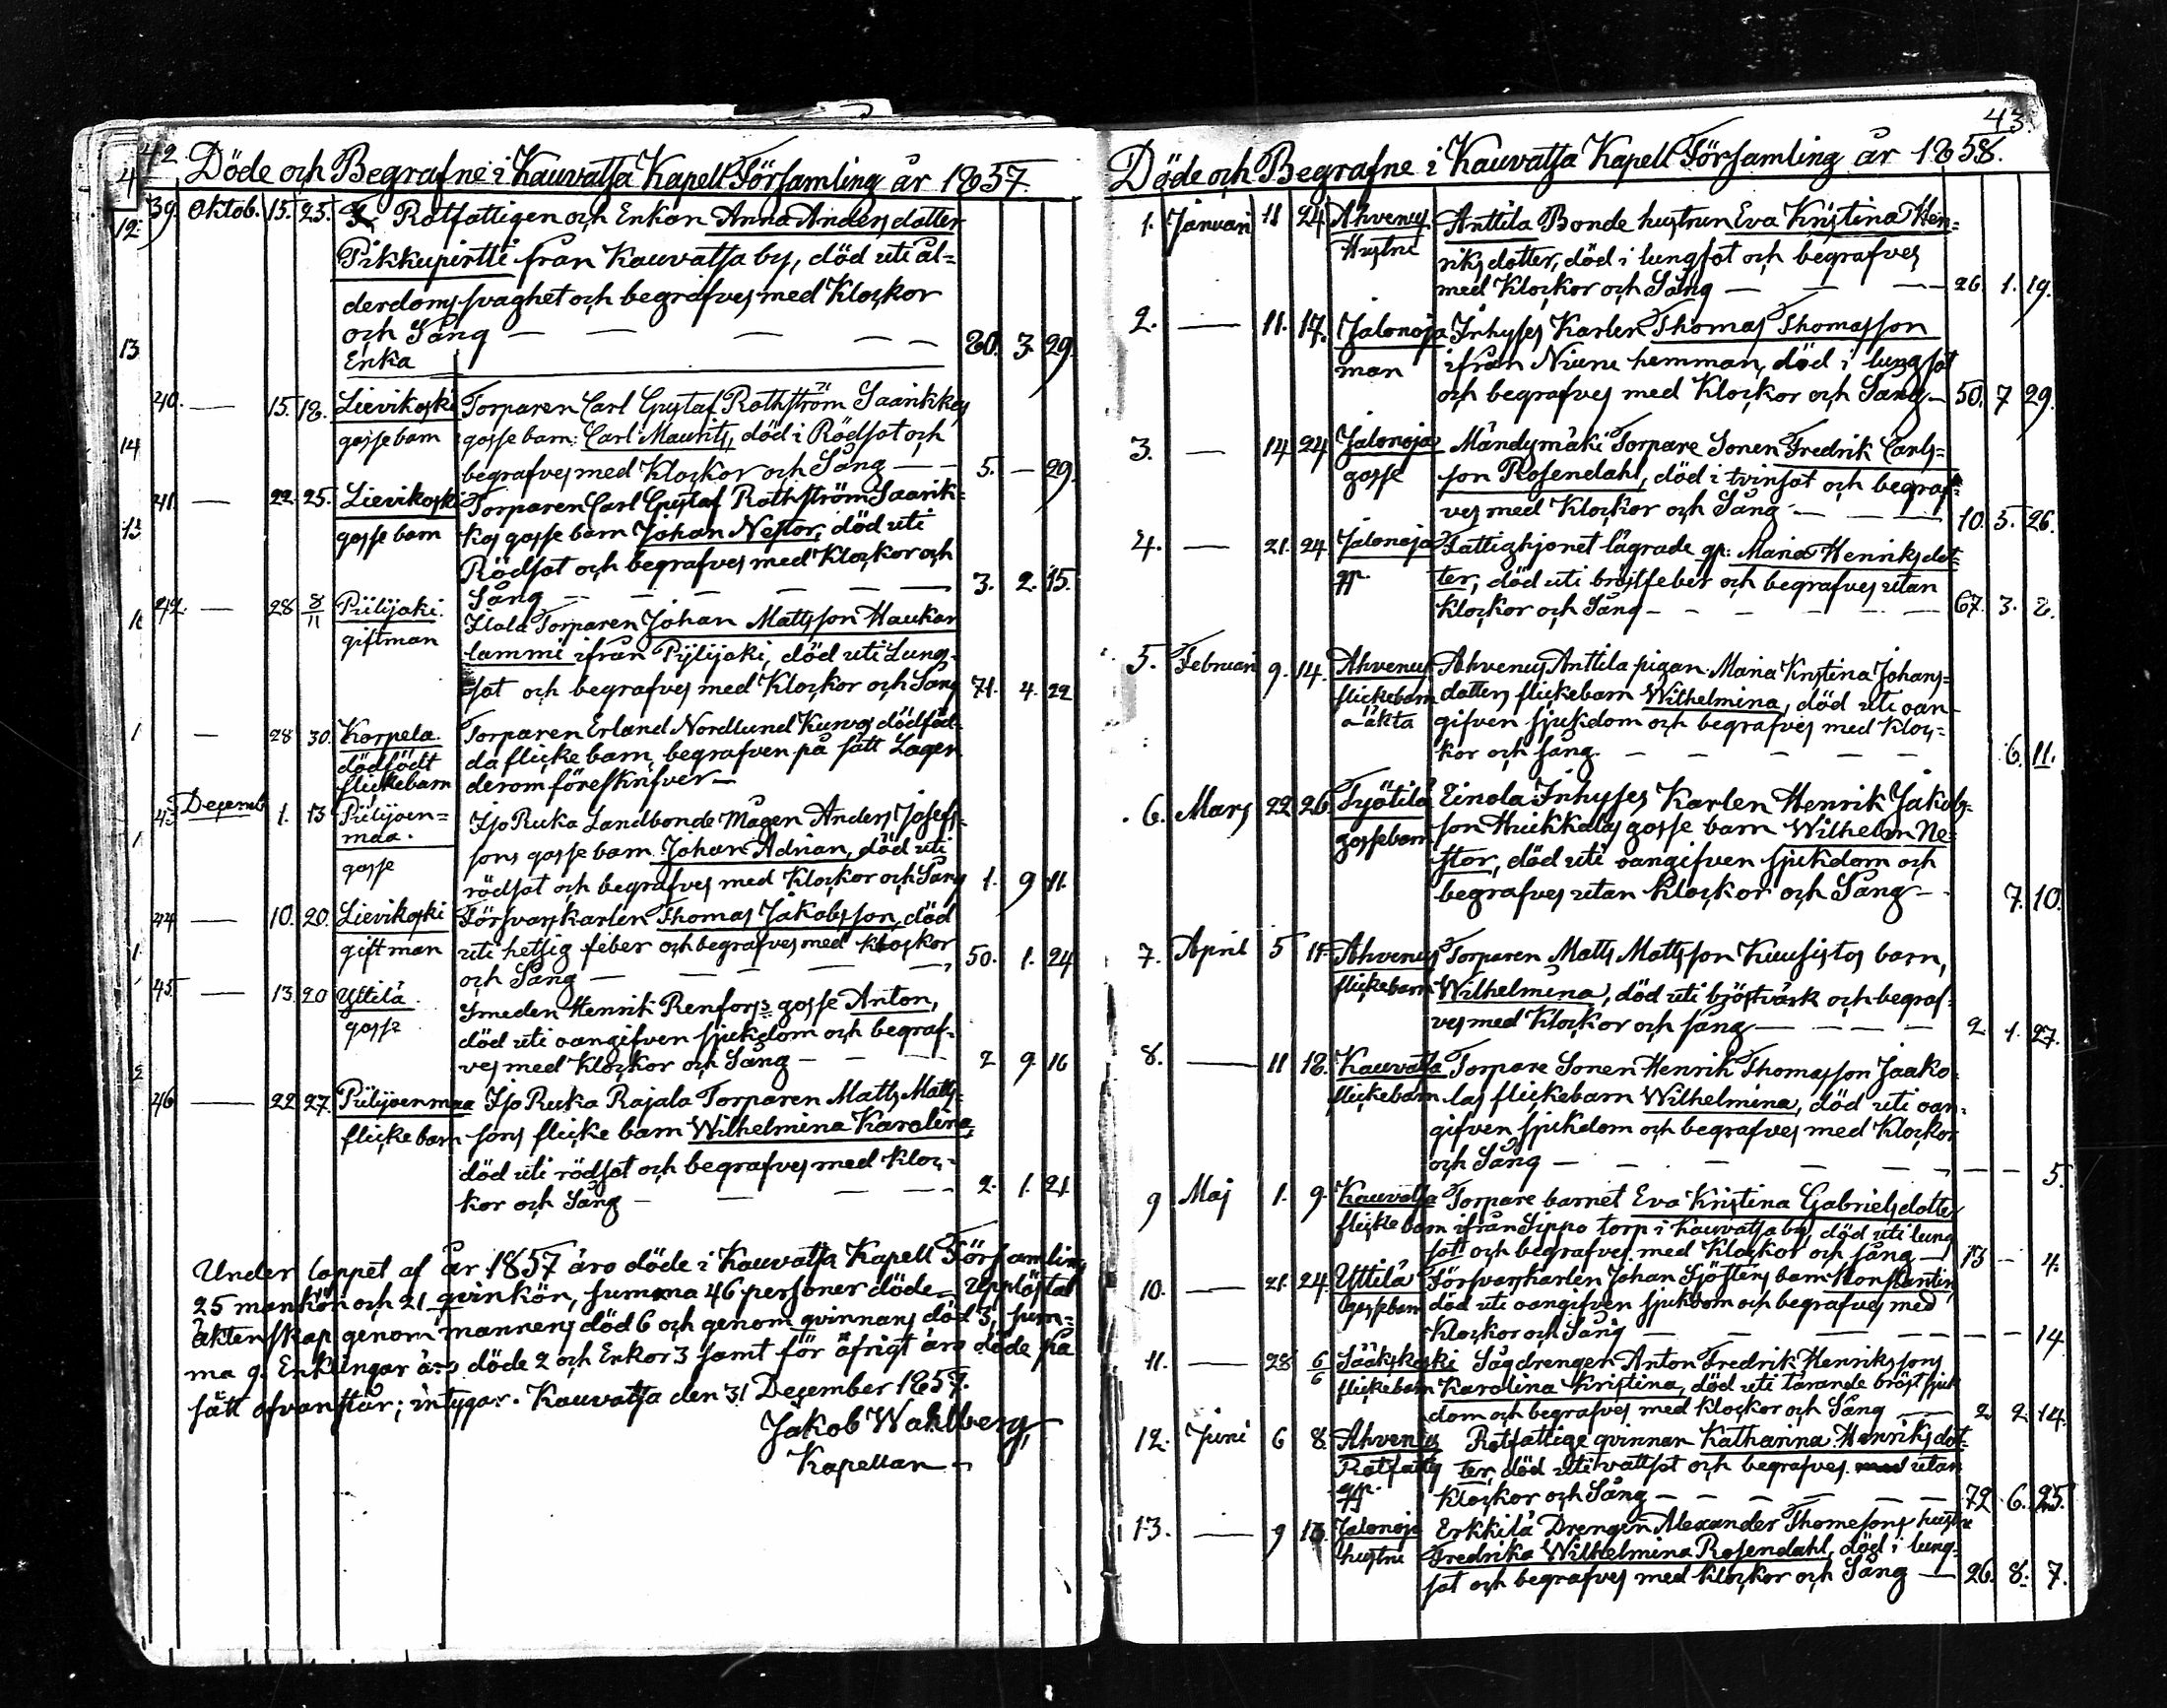 42
Döde och Begrafne i Kauvatsa Kapell Församling år 1857.
39. Oktob. 15. 23. Rotfattigen och Enkan Anna Andersdotter
Pikkupirtti från Kauvatsa by, död uti ål-
derdomssvaghet och begrafves med Klockor
och Sång — — — — — 80. 3. 29.
Enka
40. — 15. 18. Lievikoski Torparen Carl Gustaf Rothström Saarikkos
gossebarn gossebarn: Carl Maurits, död i Rödsot och
begrafves med Klockor och Sång — — 5. — 29.
41. — 22. 25. Lievikoski Torparen Carl Gustaf Rothström Saarik-
gossebarn kos gossebarn Johan Nestor, död uti
Rödsot och begrafves med Klockor och
Sång — — — — — — 3. 2. 15.
42. — 28 8/11 Piilijoki Ilola Torparen Johan Mattsson Haukan
giftman lammi ifrån Pylijoki, död uti Lung-
sot och begrafves med Klockor och Sång 71. 4. 22
— 28 30. Korpela. Torparen Erland Nordlund Kuvos dödföd-
dödfödt da flickebarn, begrafven på sätt Lagen
flickebarn derom föreskrifver —
43 Decemb. 1. 13 Piilijoen= Iso Ruka Landbonde Mågen Anders Josefs-
maa. sons gossebarn Johan Adrian, död uti
gosse rödsot och begrafves med Klockor och Sång 1. 9 11.
44 — 10. 20. Lievikoski Försvarskarlen Thomas Jakobsson, död
giftman uti hetsig feber och begrafves med Klockor
och Sång — — — — — 50. 1. 24
45. — 13. 20 Yttilä. Smeden Henrik Renfors's gosse Anton,
gosse död uti oangifven sjukdom och begraf-
ves med Klockor och Sång — — — 2 9. 16
46 — 22 27. Piilijoenmaa Iso Ruka Rajala Torparen Matts Matts-
flickebarn sons flickebarn Wilhelmina Karolina,
död uti rödsot och begrafves med Kloc-
kor och Sång — — — — 2. 1. 21.
Under loppet af år 1857 äro döde i Kauvatsa Kapell Församling
25 mankön och 21 qvinkön, summa 46 personer döde — Upplöstas
äktenskap genom mannens död 6 och genom qvinnans död 3, sum-
ma 9. Enklingar äro döde 2 och Enkor 3 samt för öfrigt äro döde på
sätt ofvanstår; intygar. Kauvatsa den 31 December 1857.
Jakob Wahlberg,
Kapellan —
43.
Döde och Begrafne i Kauvatsa Kapell Församling år 1858.
1. Januari 11 24. Ahvenus Anttila Bonde hustrun Eva Kristina Hen-
Hustru riksdotter, död i lungsot och begrafves
med Klockor och Sång — — — 26. 1. 19.
2. — 11. 17. Jalonoja Inhyses Karlen Thomas Thomasson
man ifrån Niemi hemman, död i lungsot
och begrafves med Klockor och Sång — 50. 7 29.
3. — 14 24 Jalonoja Mändymäki Torpare Sonen Fredrik Carls-
gosse son Rosendahl, död i tvinsot och begraf-
ves med Klockor och Sång — — — 10. 5. 26.
4. — 21. 24. Jalonoja Fattighjonet lägrade qp: Maria Henriksdot-
qp. ter, död uti bröstfeber och begrafves utan
Klockor och Sång — — — — — 67. 3. 8.
5. Februari 9. 14. Ahvenus Ahvenus Anttila pigan Maria Kristina Johans-
flickebarn dotters flickebarn Wilhelmina, död uti oan-
oäkta gifven sjukdom och begrafves med Kloc-
kor och sång — — — — — 6. 11.
6. Mars 22 26. Työtilä Einola Inhyses Karlen Henrik Jakobs-
gossebarn son Huikkalas gossebarn Wilhelm Ne-
stor, död uti oangifven sjukdom och
begrafves utan Klockor och Sång — — 7. 10.
7. April 5 11. Ahvenus Torparen Matts Mattsson Kuusistos barn,
flickebarn Wilhelmina, död uti bjöstvärk och begraf-
ves med Klockor och sång — — — — 2 1. 27.
8. — 11 18. Kauvatsa Torpare Sonen Henrik Thomasson Jaako-
flickebarn las flickebarn Wilhelmina, död uti oan-
gifven sjukdom och begrafves med Klockor
och Sång — — — — — — — 5.
9 Maj 1. 9. Kauvatsa Torpare barnet Eva Kristina Gabrielsdotter
flickebarn ifrån Sippo torp i Kauvatsa by, död uti lung
sot och begrafves med Klockor och sång — 13 — 4.
10. — 21. 24. Yttilä Försvarskarlen Johan Sjöstens barn Konstantin,
gossebarn död uti oangifven sjukdom och begrafves med
Klockor och Sång — — — — — — — 14.
11. — 28 6/6 Sääkskoski Sågdrengen Anton Fredrik Henrikssons
flickebarn Karolina Kristina, död uti tärande bröst sjuk
dom och begrafves med Klockor och Sång — 2 2. 14.
12. Juni 6 8. Ahvenus Rotfattige qvinnan Katharina Henriksdot-
Rotfattig ter, död uti vattsot och begrafves utan
qp. Klockor och Sång — — — — — 72. 6. 25.
13. — 9 13. Jalonoja Erkkilä Drengen Alexander Thomesons hustru
hustru Fredrika Wilhelmina Rosendahl, död i lung-
sot och begrafves med Klockor och Sång — 26. 8. 7.